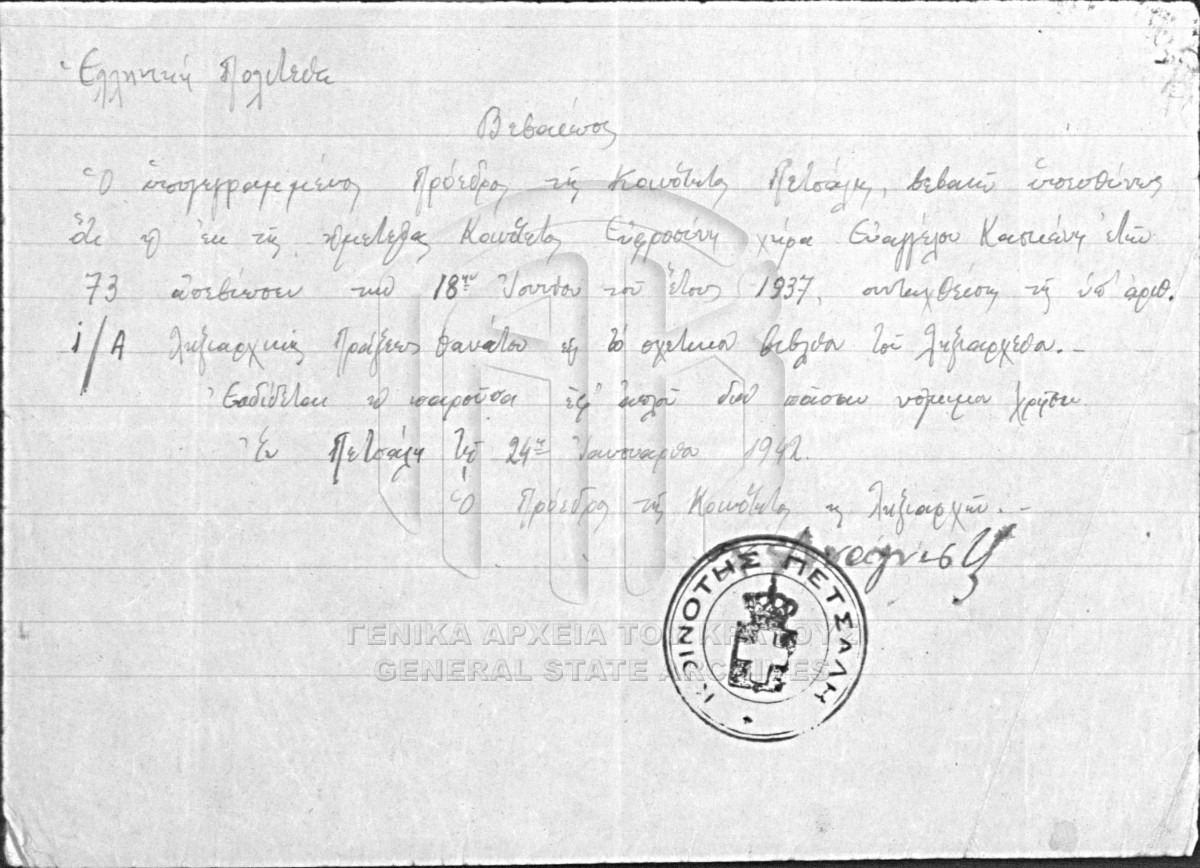 Ἑλληνική Πολιτεία
Βεβαίωσις
Ὁ ὑπογεγραμμένος Πρόεδρος τῆς Κοινότητος Πετσάλη, βεβαιῶ ὑπευθύνως
ὅτι ἡ ἐκ τῆς ἡμετέρας Κοινότητος Εὐφροσύνη χήρα Εὐαγγέλου ἐτῶν
73 ἀπεβίωσεν τήν 18ην Ἰουνίου τοῦ ἔτους 1937, συνταχθείσης τῆς ὑπ' ἀριθ.
1/Α ληξιαρχικῆς Πράξεως θανάτου εἰς τό σχετικόν βιβλίον τοῦ ληξιαρχείου. –
Ἐκδίδεται ἡ παροῦσα ἐφ' ἁπλοῦ διά πᾶσαν νόμιμον χρῆσιν
Ἐν Πετσάλη τῇ 24ῃ Ἰανουαρίου 1942.
Ὁ Πρόεδρος τῆς Κοινότητος ληξίαρχος. –
ΚΟΙΝΟΤΗΣ ΠΕΤΣΑΛΗ
ΓΕΝΙΚΑ ΑΡΧΕΙΑ ΤΟΥ ΚΡΑΤΟΥΣ
GENERAL STATE ARCHIVES